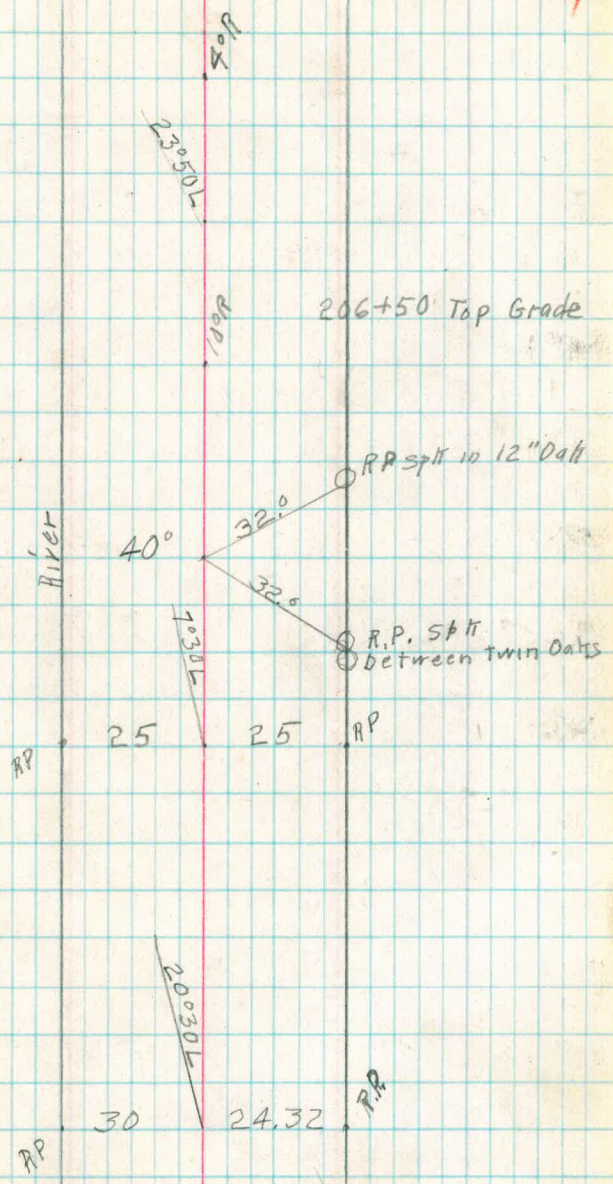 4°R
23°50L
10°R
206+50 Top Grade
RP spk in 12" Oak
32.0
River
40°
32.6
7°30L
R.P. Spk
between Twin Oaks
RP 25 25 RP
20°30L
RP 30 24.32 R.P.